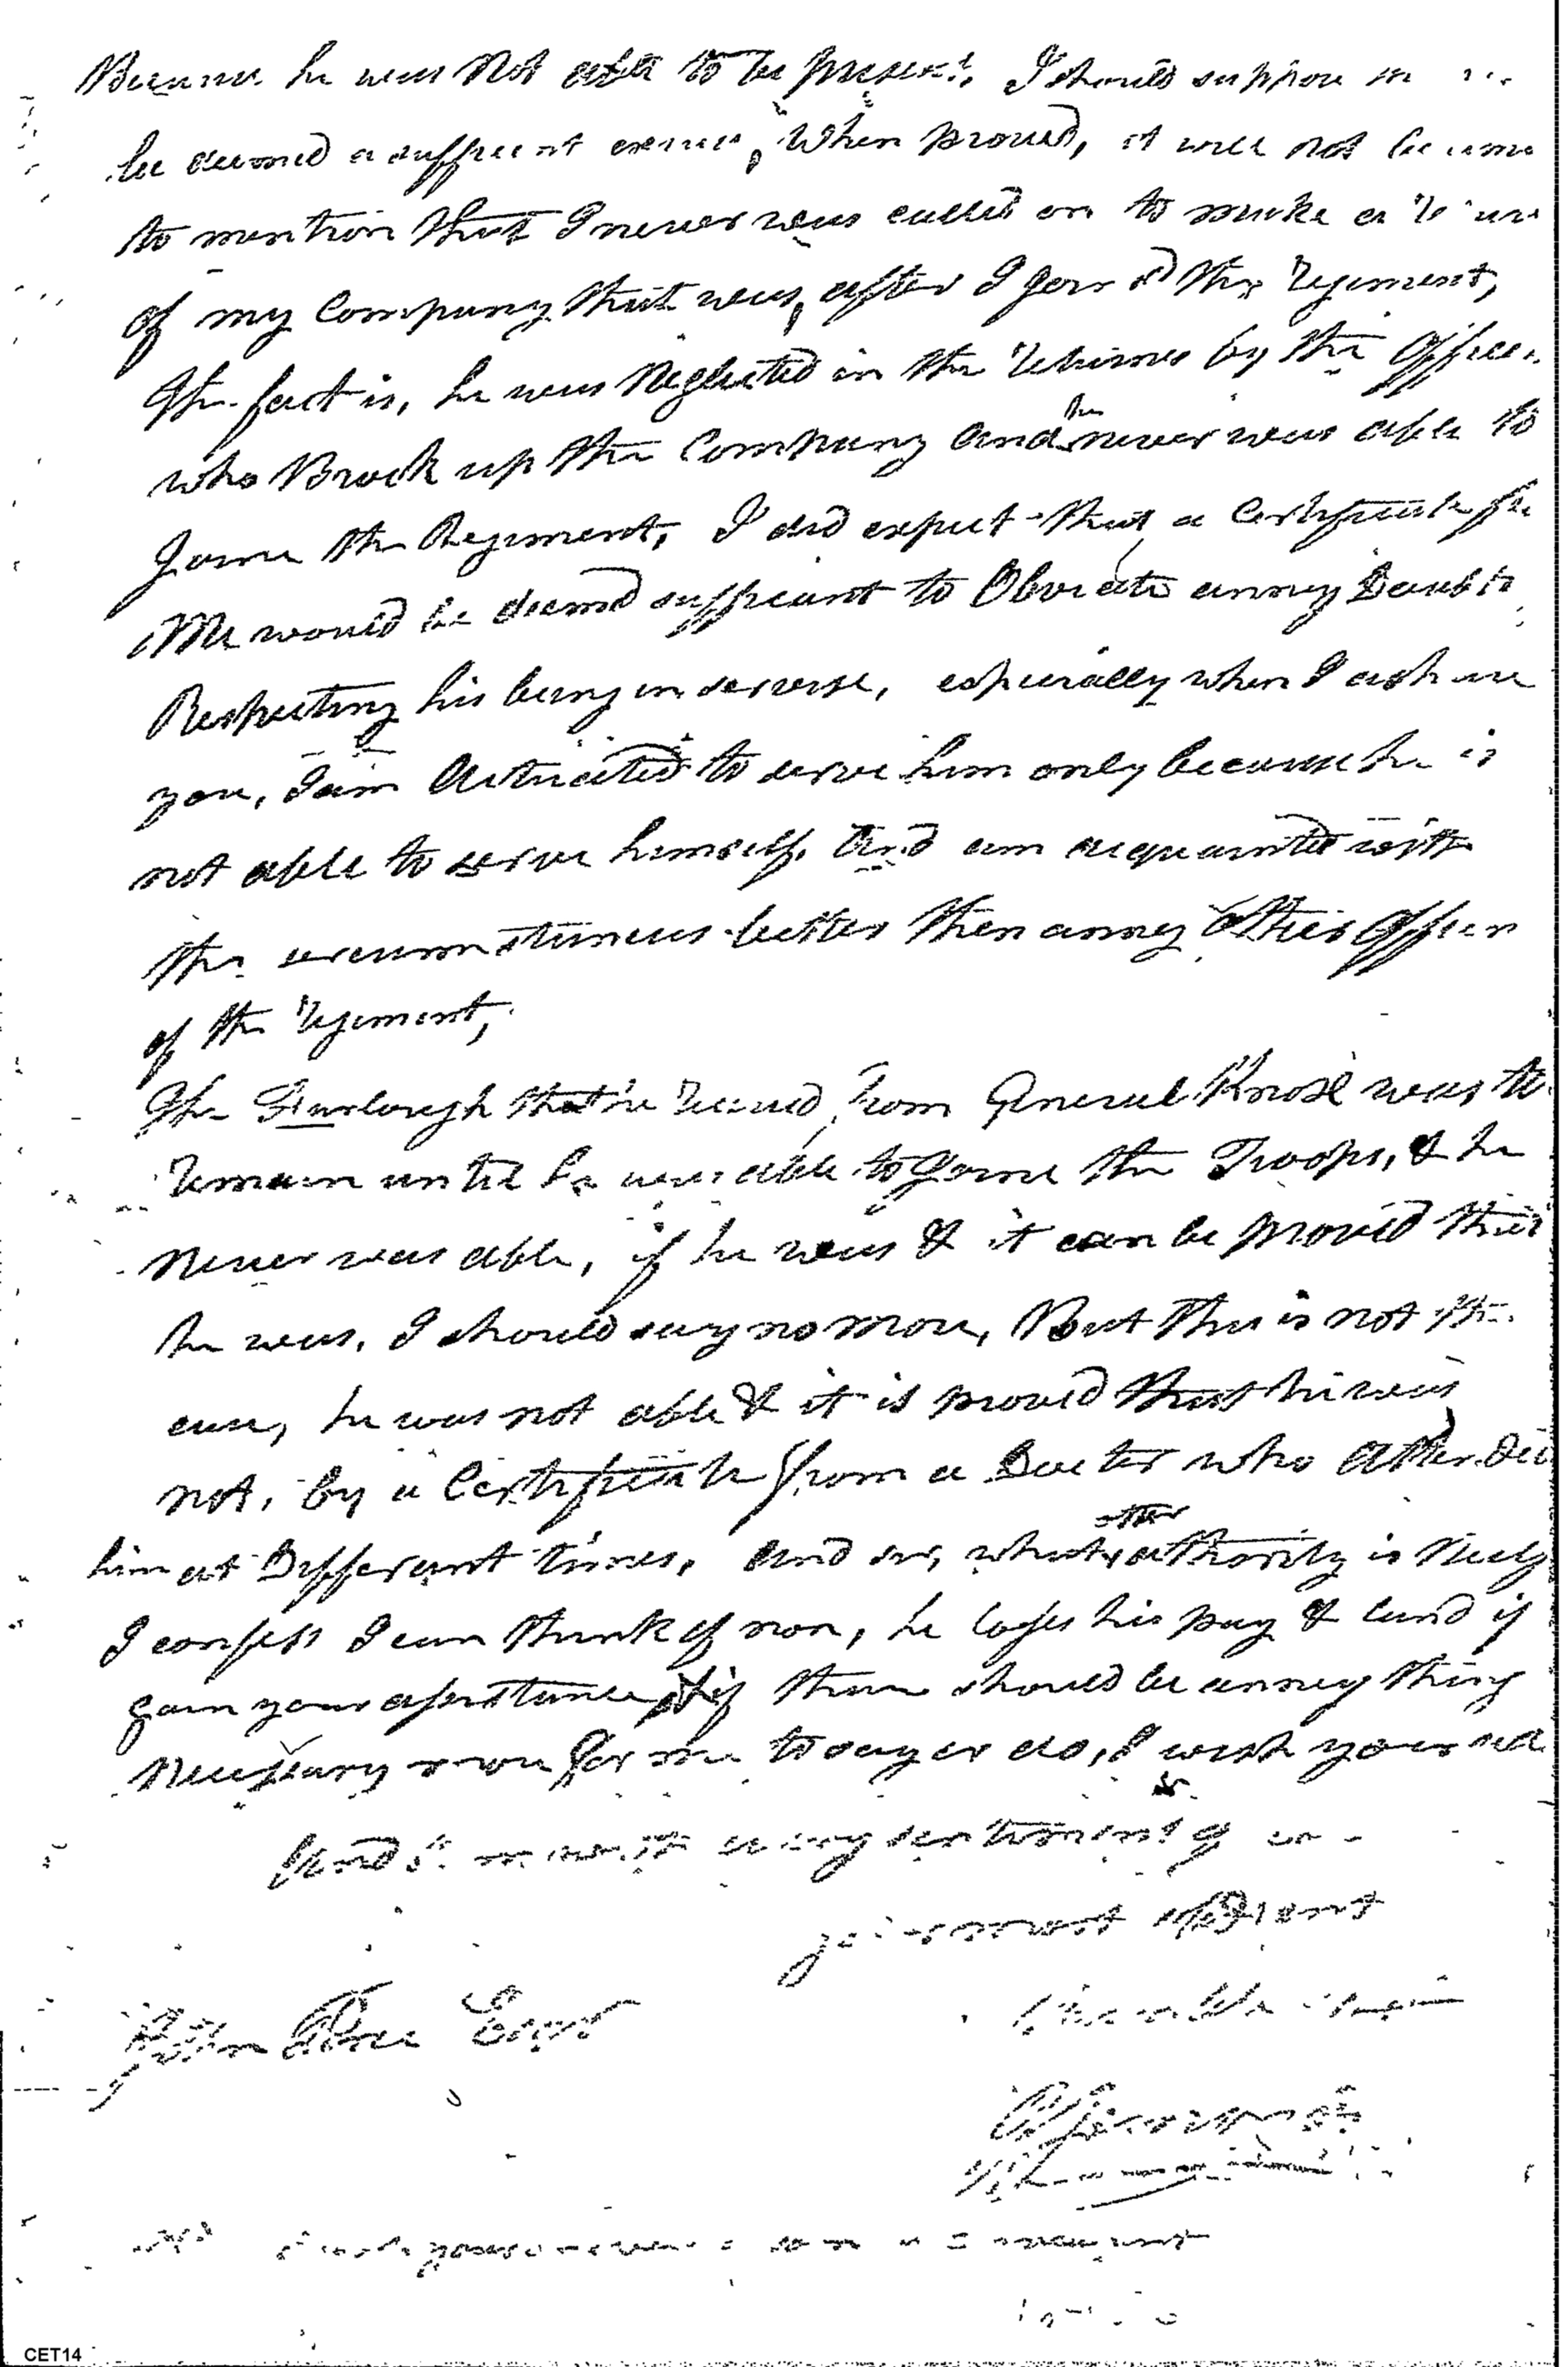 Because he was Not able to be present, I should suppose
be deemed a suffecient excuse, When proved, it will not be
to mention that I never was called on to make a
of my Company that was, after I Joind the Regiment,
The fact is, he was Neglected in the returns by the Officer
who Brook up the Company and he never was able to
Joine the Regiment, I did expect that a Certificate
Me would be deemd suffecient to Obviate anney Doubts
Respecting his being in servise, especially when I ashure
you, I am Actuated to serve him only because he is
not able to serve himself, And am acquainted with
the circumstances better then anney Other Officer
of the regiment,
The Furlough that he receivd from General Knox was to
remain until he was able to Joine the Troops, & he
never was able, if he was & it can be provid that
he was, I should say no more, But this is not the
case, he was not able & it is provd that he was
not, by a Certificate from a Docter who Attended
him at Different times, And sir, what other athority is
I confess I can think of non, he loses his pay & land if
your assistance, if there should be anney thing
Necessary more for me to say or do, I wish you
every sentiment of
your most obedient
humble
John Pierce Esqr
CET14